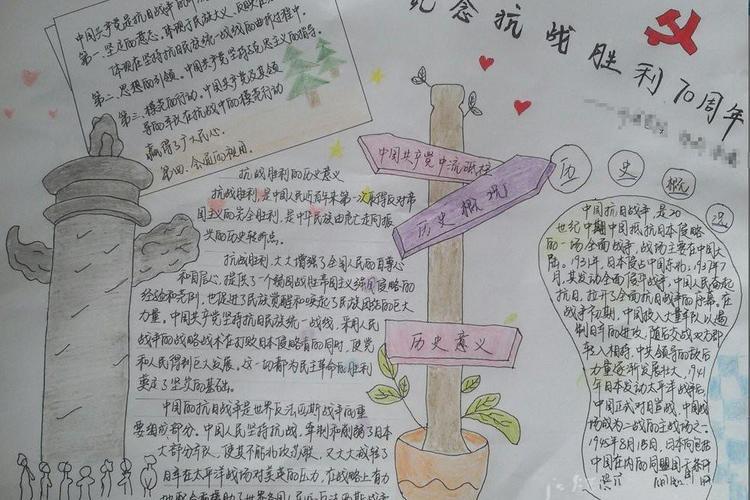 纪念抗战胜利70周年
中国共产党是抗日战争的
第一、坚定的意志。体现了民族大义,
体现在坚持抗日民族统一战线的曲折过程中。
第二、思想的引领。中国共产党坚持马克思主义的指导。
第三、模范的行动。中国共产党及其领
导的军队在抗战中的模范行动
赢得了广大民心。
第四、
中国共产党中流砥柱
历史概况
历史意义
抗战胜利的历史意义
抗战胜利,是中国人民近百年来第一次取得反对帝
国主义的完全胜利,是中华民族由危亡走向振
兴的历史转折点。
抗战胜利,大大增强了全国人民的自尊心
和自信心,提供了一个弱国战胜帝国主义强国侵略的
经验和范例,也促进了民族觉醒和唤起了民族团结的巨大
力量。中国共产党坚持抗日民族统一战线,采用人民
战争的战略战术在打败日本侵略者的同时,使党
和人民得到巨大发展。这一切都为民主革命的胜利
奠定了坚实的基础。
中国的抗日战争是世界反法西斯战争的重
要组成部分。中国人民坚持抗战,牵制和削弱了日本
大部分军队,使其不能北攻苏联,又大大减轻了
日军在太平洋战场对美英的压力,在战略上有力
地配合
历史概况
中国抗日战争,是20
世纪中期中国抵抗日本侵略
的一场全面战争,战场主要在中国大
陆。1931年,日本侵占中国东北,1937年7
月,其发动全面侵华战争,中国人民奋起
抗日,拉开了全面抗日战争的序幕。在
战争初期,中国投入大量军队以遏
制日军的进攻,随后交战双方都
转入相持,中共领导的敌后
力量逐渐发展壮大,1941
年日本发动太平洋战争后,
中国正式对日宣战,中国战
场成为二战的主战场之一。
1945年8月15日,日本向包括
中国在内的同盟国无条件